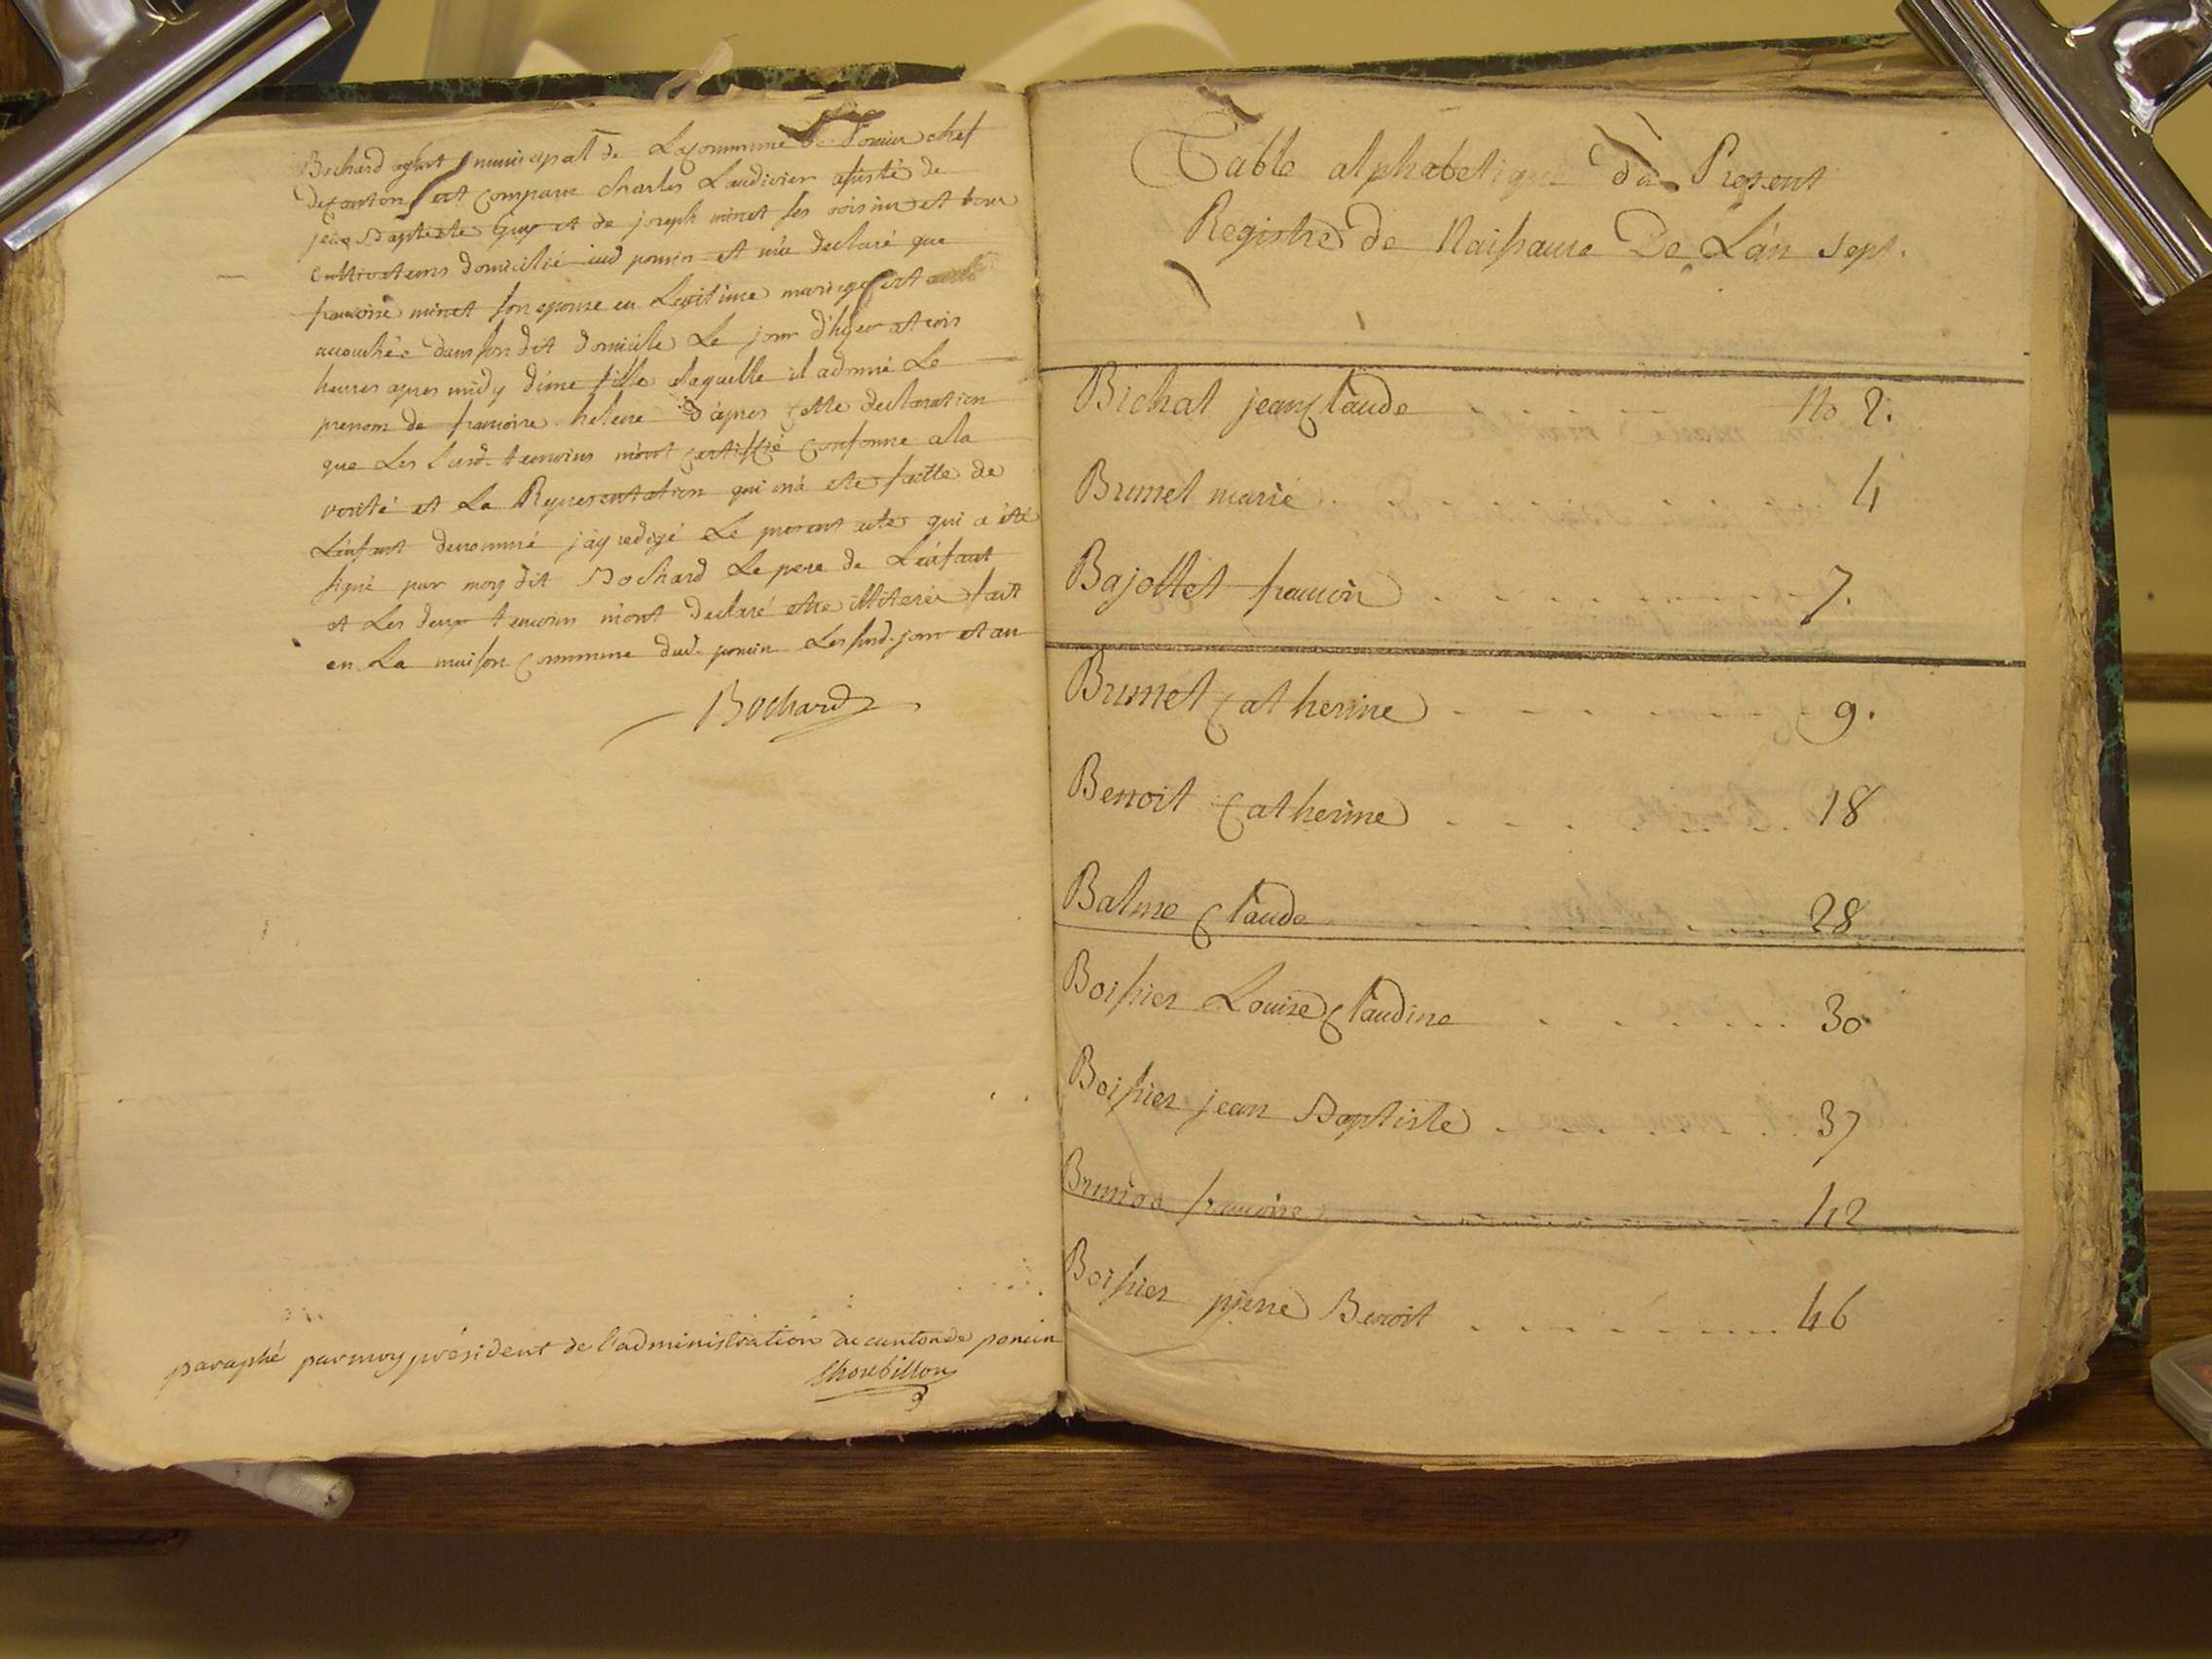 Bochard agent municipal de La Commune de Poncin chef
de Canton est Comparu Charles Laudivier assisté de
jean Baptiste Guy et de joseph minet ses voisins et tous
Cultivateurs domicilié aud poncin et m'a declaré que
francoise minet son epouse en Legitime mariage est
accouchée dans son dit domicile Le jour d'hyer a trois
heures apres midy d'une fille a laquelle il a donné Le
prenom de francoise helene d'apres Cette declaration
que Les Susd. temoins m'ont Certiffié Conforme a la
verité et La Representation qui m'a ete faitte de
L'enfant denommé j'ay redigé Le present acte qui a été
signé par moy dit Bochard Le pere de L'enfant
et Les deux temoins m'ont declaré etre illiterés fait
en La maison Commune dud. poncin Les susd. jour et an
Bochard
paraphé par moy président de l'administration du canton de poncin
Table alphabetique du Present
Registre de Naissance De L'an sept.
Bichat jean Claude No 2.
Brunet marie 4
Bajollet francois 7.
Brunet Catherine 9.
Benoit Catherine 18
Balme Claude 28
Boissier Louise Claudine 30
Boissier jean Baptiste 37
francoise 42
Boissier pierre Benoit 46